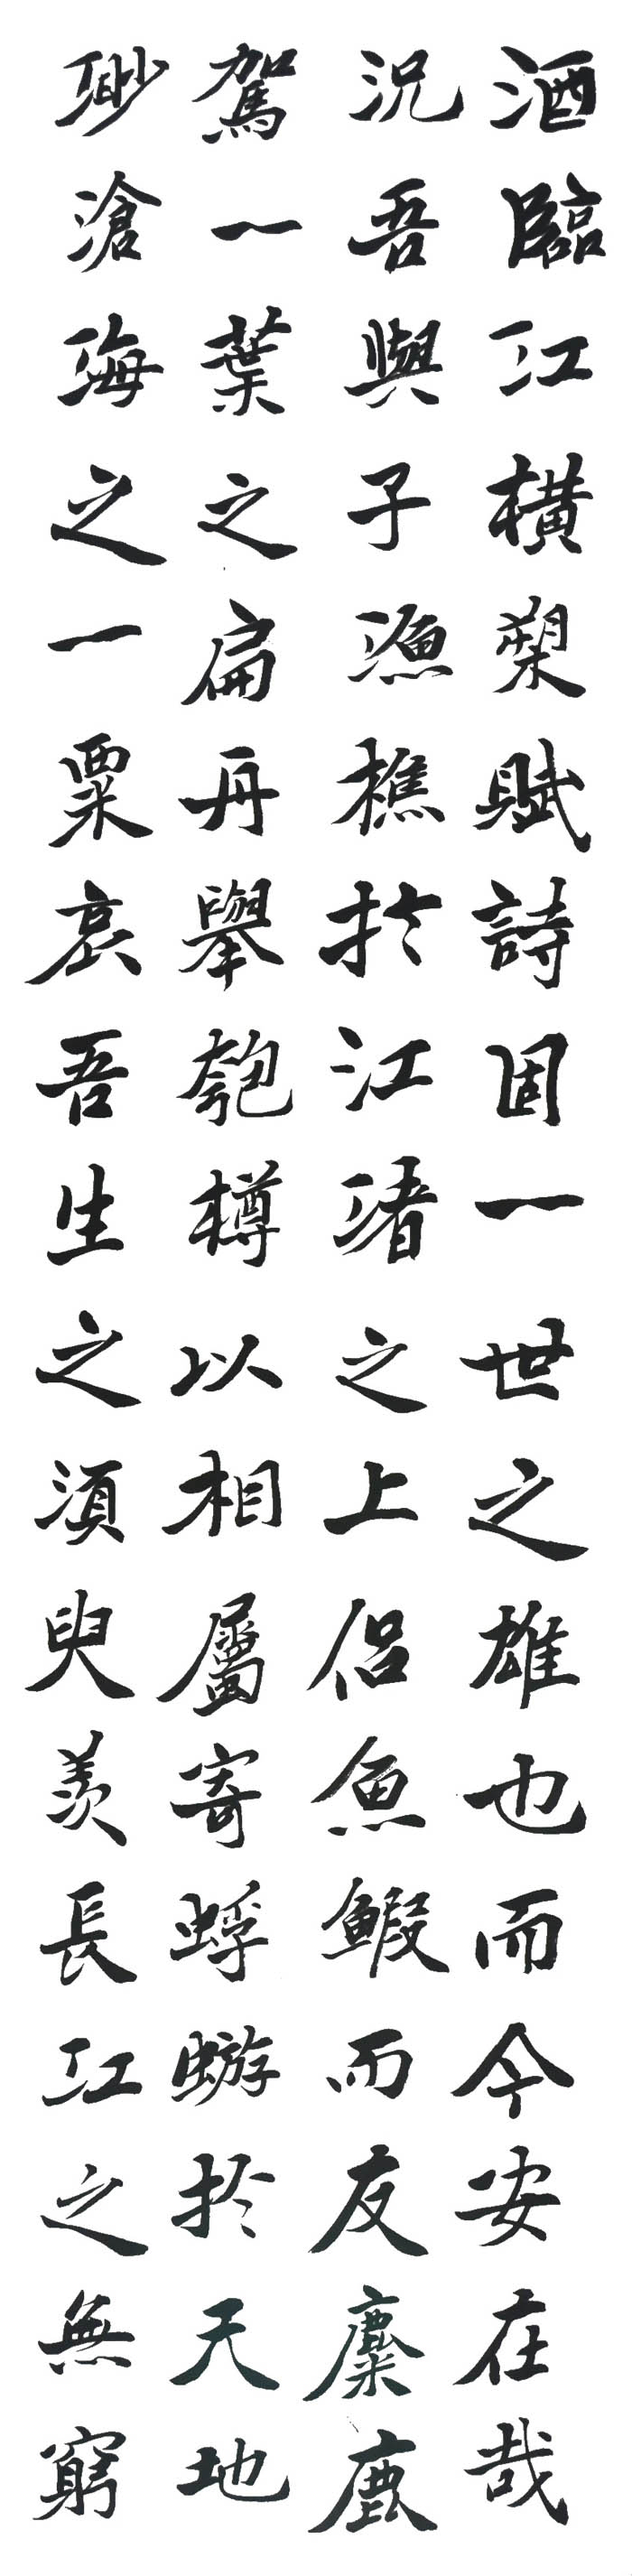 酒臨江橫槊賦詩固一世之雄也而今安在哉
況吾與子漁樵於江渚之上侶魚鰕而友麋鹿
駕一葉之扁舟舉匏樽以相屬寄蜉蝣於天地
渺滄海之一粟哀吾生之須臾羨長江之無窮